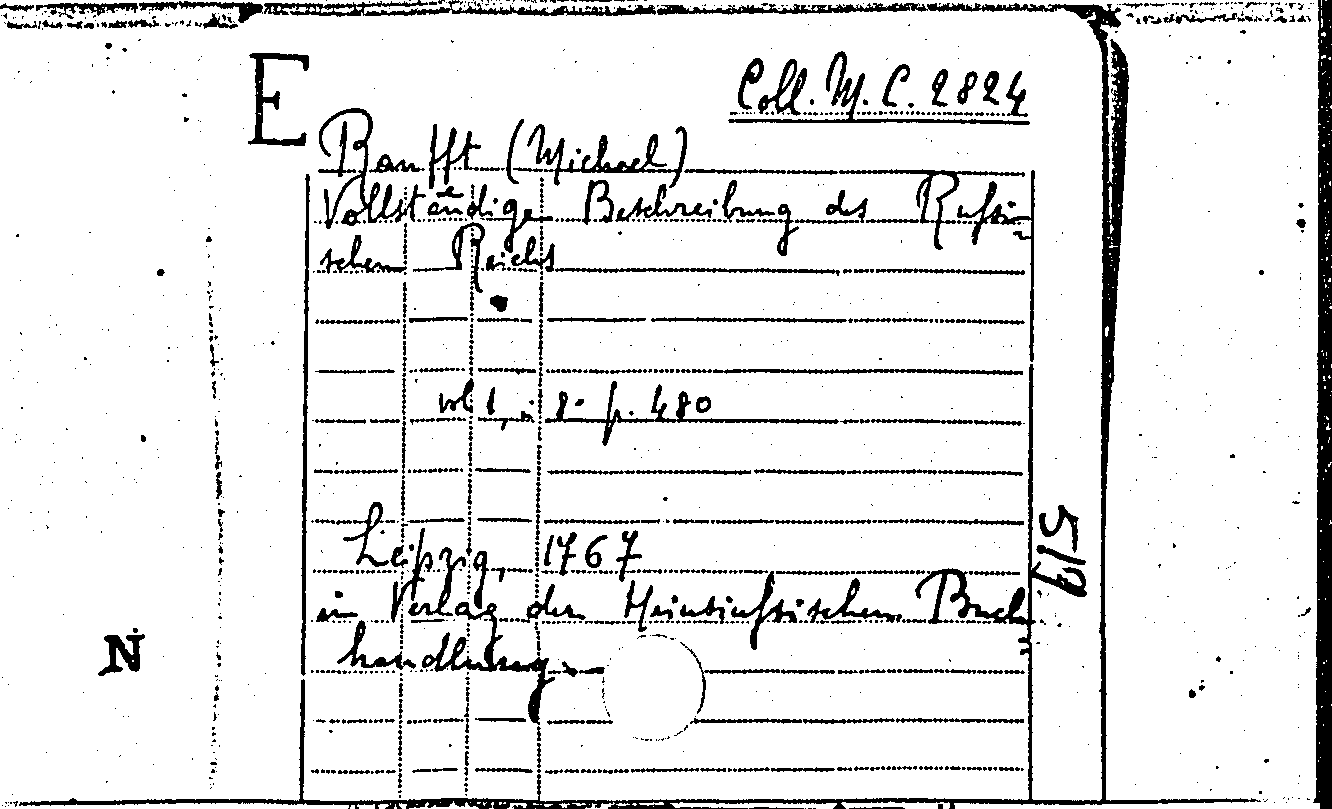 E
Coll. M. C. 2824
Ranfft (Michael)
Vollständige Beschreibung des Rußi=
schen Reichs
vol 1, in 8° p. 480
Leipzig, 1767
im Verlag der Heinsiußischen Buch
handlung.
N